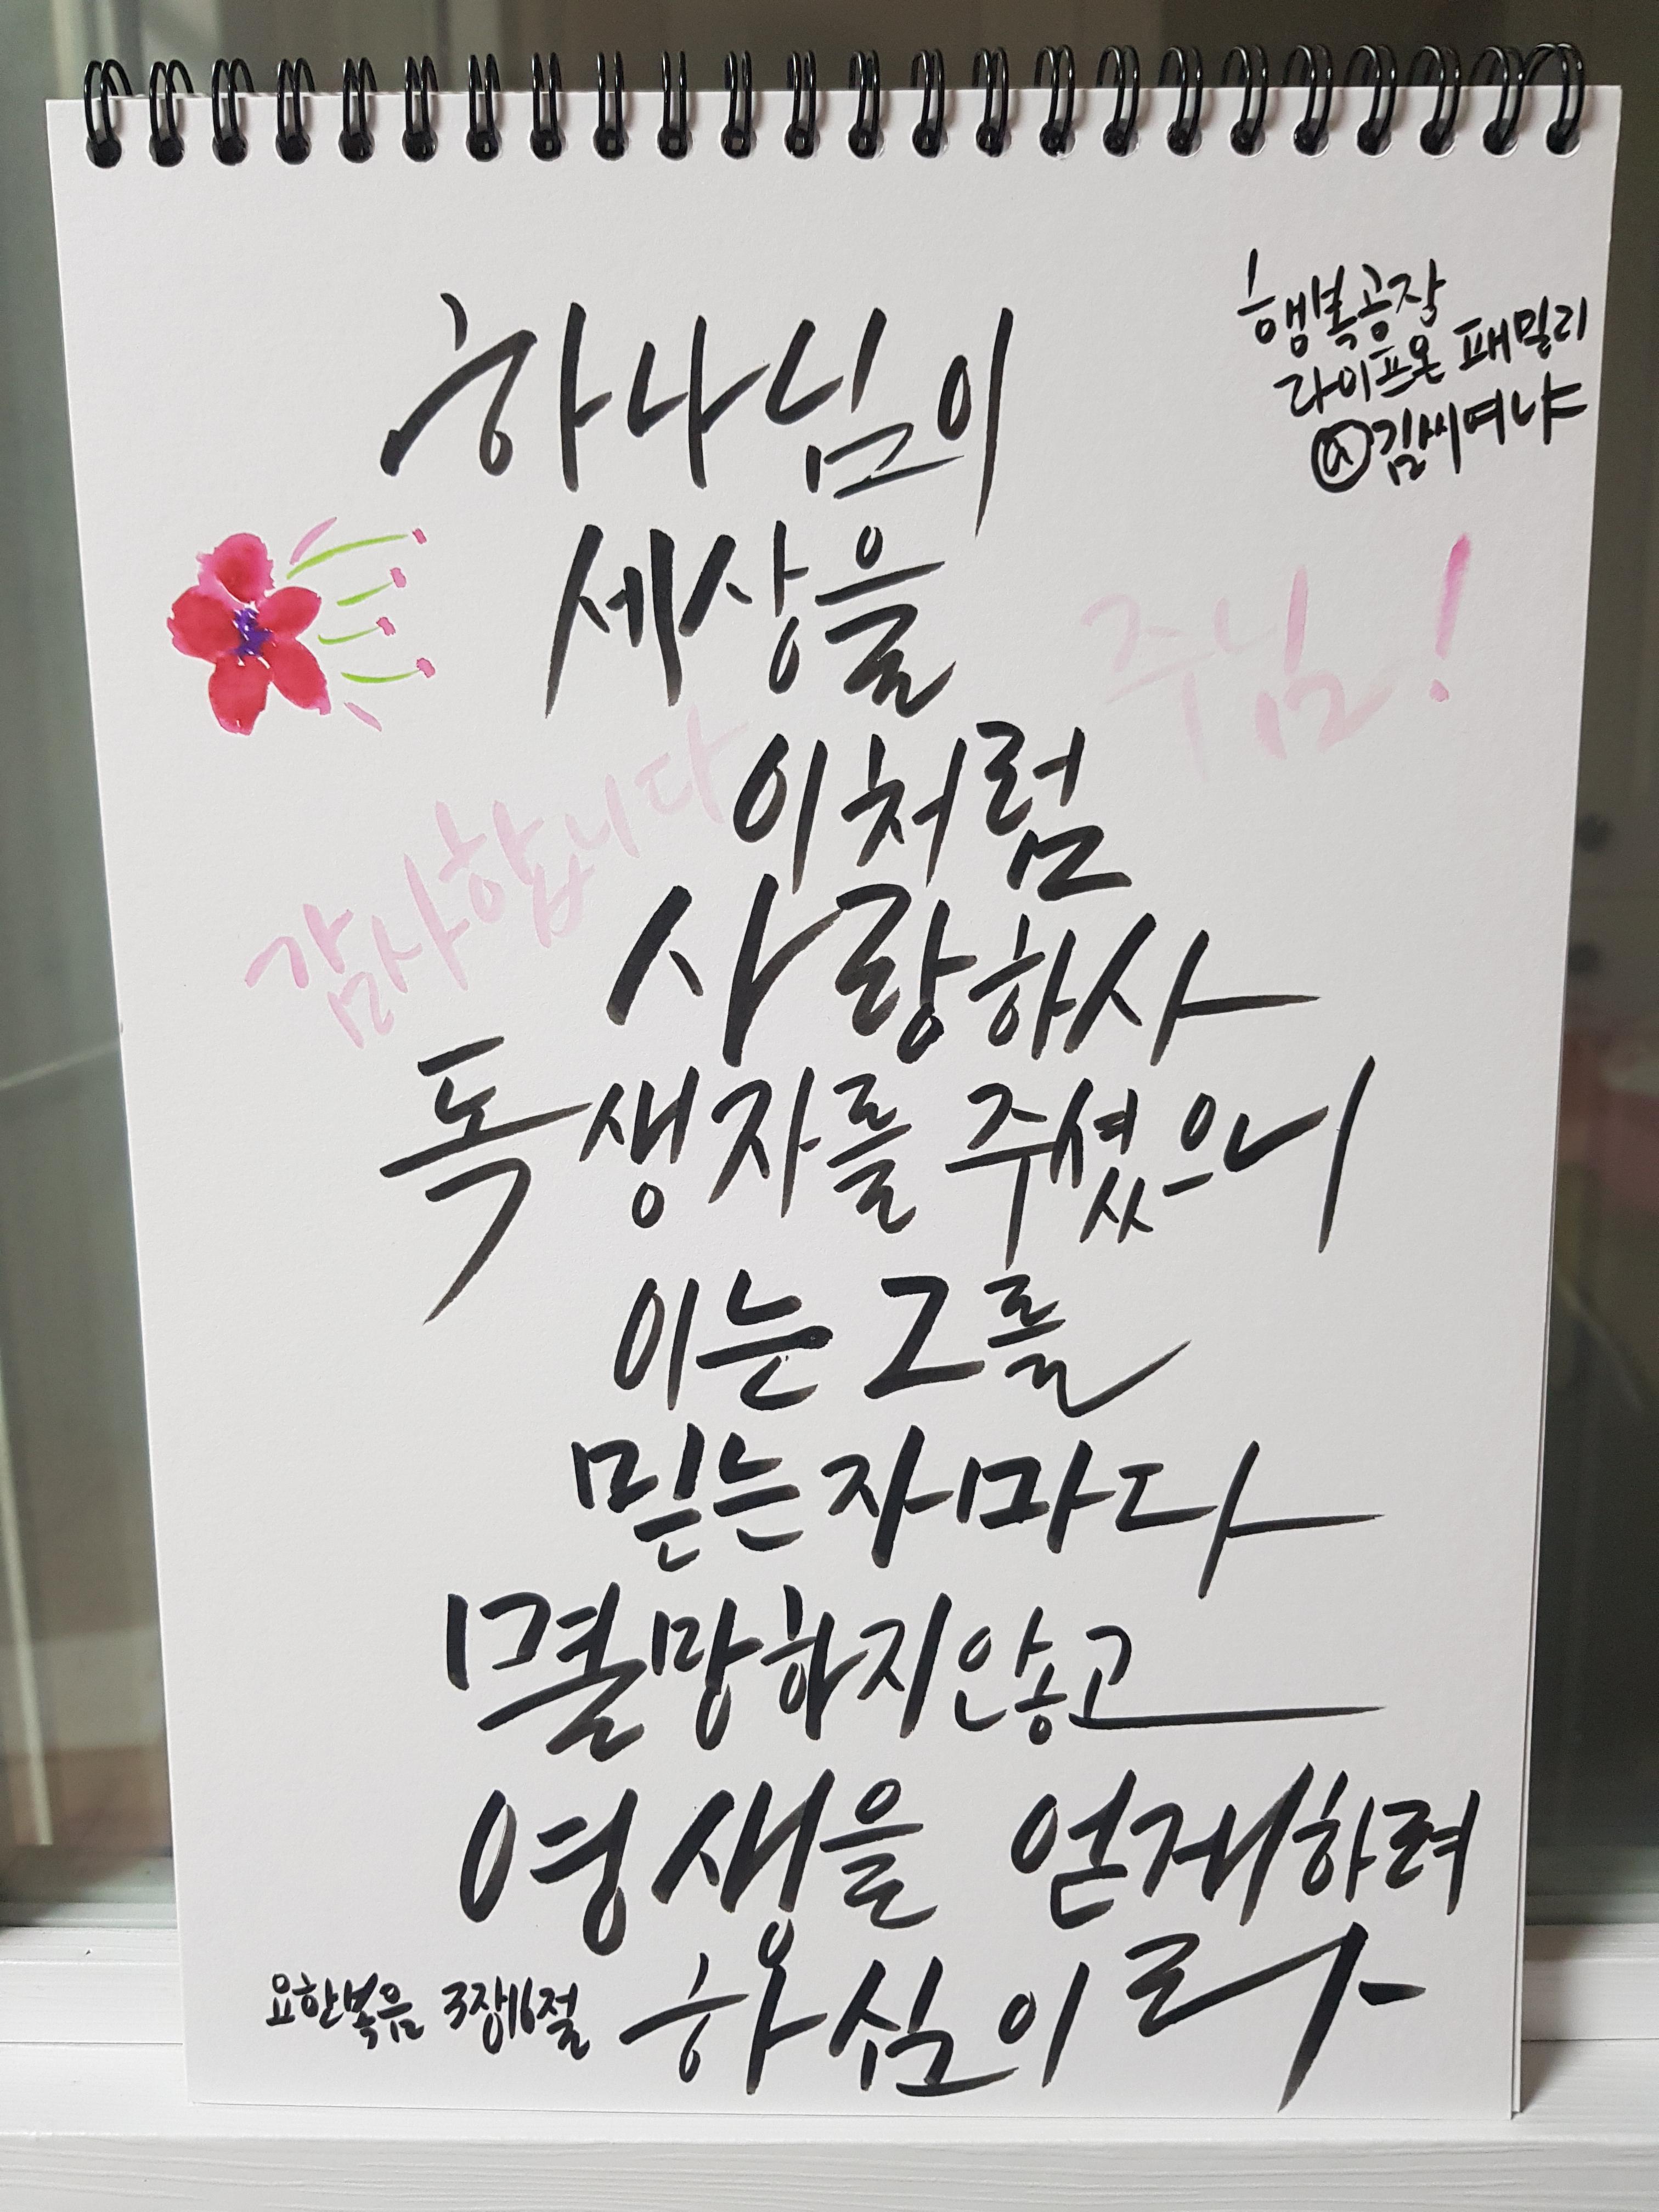 행복공장
라이프온 패밀리
@김씨여나
하나님이
세상을
주님!
이처럼
감사합니다
사랑하사
독생자를 주셨으니
이는 그를
믿는자마다
멸망하지않고
영생을 얻게하려
하심이라
요한복음 3장16절